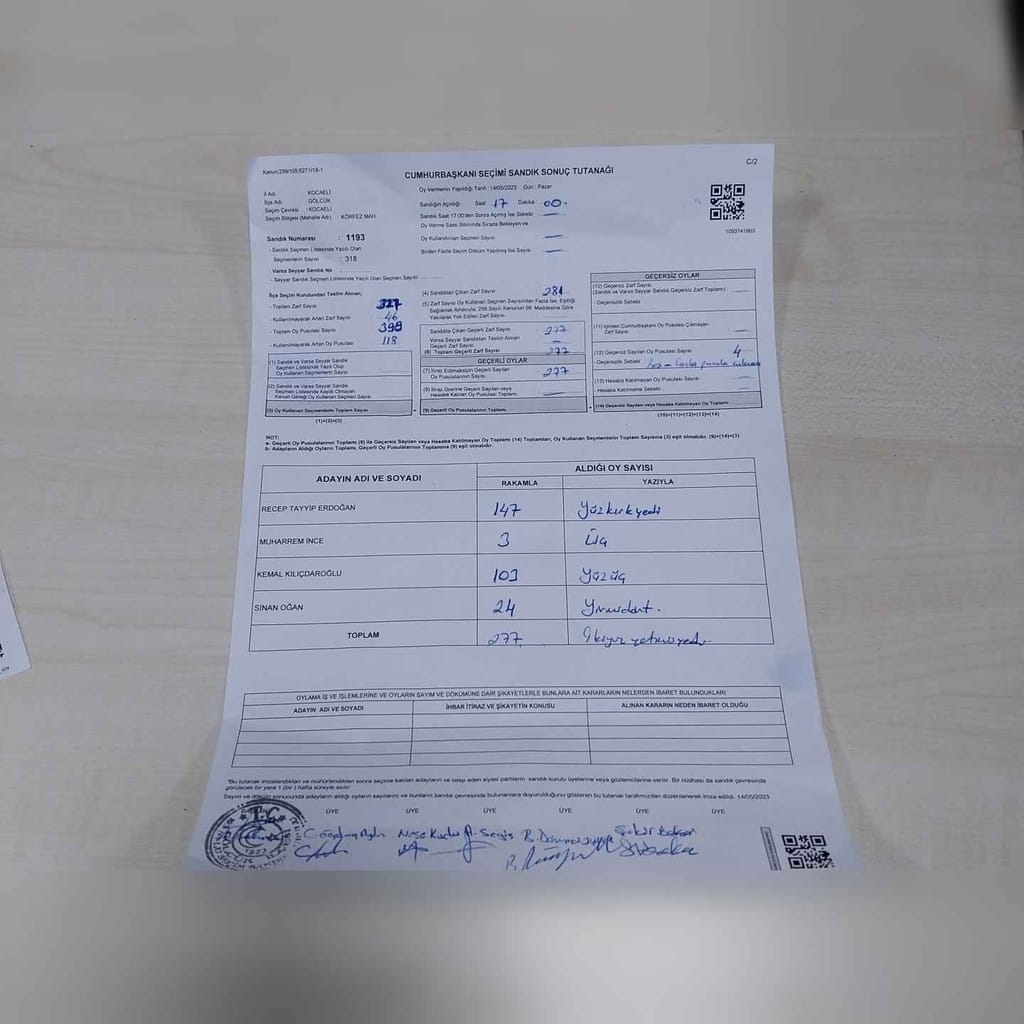 Kanun:298/105;6271/18-1
C/2
CUMHURBAŞKANI SEÇİMİ SANDIK SONUÇ TUTANAĞI
Oy Vermenin Yapıldığı Tarih :14/05/2023 Gün : Pazar
İl Adı : KOCAELİ
İlçe Adı : GÖLCÜK
Seçim Çevresi : KOCAELİ
Seçim Bölgesi (Mahalle Adı) : KÖRFEZ MAH.
Sandığın Açıldığı Saat 17 Dakika 00
Sandık Saat 17:00'den Sonra Açılmış İse Sebebi
Oy Verme Saati Bitiminde Sırada Bekleyen ve
Oy Kullandırılan Seçmen Sayısı
Birden Fazla Sayım Döküm Yapılmış İse Sayısı
1093741803
Sandık Numarası : 1193
- Sandık Seçmen Listesinde Yazılı Olan
Seçmenlerin Sayısı : 318
Varsa Seyyar Sandık No :
- Seyyar Sandık Seçmen Listesinde Yazılı Olan Seçmen Sayısı
İlçe Seçim Kurulundan Teslim Alınan;
- Toplam Zarf Sayısı 327
- Kullanılmayarak Artan Zarf Sayısı 46
- Toplam Oy Pusulası Sayısı 398
- Kullanılmayarak Artan Oy Pusulası 118
(1) Sandık ve Varsa Seyyar Sandık
Seçmen Listesinde Yazılı Olup
Oy Kullanan Seçmenlerin Sayısı
(2) Sandık ve Varsa Seyyar Sandık
Seçmen Listesinde Kayıtlı Olmayan
Kanun Gereği Oy Kullanan Seçmen Sayısı
(3) Oy Kullanan Seçmenlerin Toplam Sayısı
(1)+(2)=(3)
(4) Sandıktan Çıkan Zarf Sayısı 281
(5) Zarf Sayısı Oy Kullanan Seçmen Sayısından Fazla İse, Eşitliği
Sağlamak Amacıyla; 298 Sayılı Kanunun 98. Maddesine Göre
Yakılarak Yok Edilen Zarf Sayısı
Sandıkta Çıkan Geçerli Zarf Sayısı 277
Varsa Seyyar Sandıktan Teslim Alınan
Geçerli Zarf Sayısı
(6) Toplam Geçerli Zarf Sayısı 277
GEÇERLİ OYLAR
(7) İtiraz Edilmeksizin Geçerli Sayılan
Oy Pusulalarının Sayısı 277
(8) İtiraz Üzerine Geçerli Sayılan veya
Hesaba Katılan Oy Pusulası Sayısı
(9) Geçerli Oy Pusulalarının Toplamı
GEÇERSİZ OYLAR
(10) Geçersiz Zarf Sayısı
(Sandık ve Varsa Seyyar Sandık Geçersiz Zarf Toplamı)
- Geçersizlik Sebebi
(11) İçinden Cumhurbaşkanı Oy Pusulası Çıkmayan
Zarf Sayısı
(12) Geçersiz Sayılan Oy Pusulası Sayısı 4
- Geçersizlik Sebebi Boş - Fazla
(13) Hesaba Katılmayan Oy Pusulası Sayısı
Hesaba Katılmama Sebebi
(14) Geçersiz Sayılan veya Hesaba Katılmayan Oy Toplamı
(10)+(11)+(12)+(13)=(14)
NOT:
a- Geçerli Oy Pusulalarının Toplamı (9) ile Geçersiz Sayılan veya Hesaba Katılmayan Oy Toplamı (14) Toplamları, Oy Kullanan Seçmenlerin Toplam Sayısına (3) eşit olmalıdır. (9)+(14)=(3)
b- Adayların Aldığı Oyların Toplamı, Geçerli Oy Pusulalarının Toplamına (9) eşit olmalıdır.
ADAYIN ADI VE SOYADI ALDIĞI OY SAYISI
RAKAMLA YAZIYLA
RECEP TAYYİP ERDOĞAN 147 Yüzkırkyedi
MUHARREM İNCE 3 Üç
KEMAL KILIÇDAROĞLU 103 Yüzüç
SİNAN OĞAN 24 Yirmidört.
TOPLAM 277 İkiyüz yetmişyedi
OYLAMA İŞ VE İŞLEMLERİNE VE OYLARIN SAYIM VE DÖKÜMÜNE DAİR ŞİKAYETLERLE BUNLARA AİT KARARLARIN NELERDEN İBARET BULUNDUKLARI
ADAYIN ADI VE SOYADI İHBAR İTİRAZ VE ŞİKAYETİN KONUSU ALINAN KARARIN NEDEN İBARET OLDUĞU
"Bu tutanak imzalandıktan ve mühürlendikten sonra seçime katılan adayların ve talep eden siyasi partilerin sandık kurulu üyelerine veya gözlemcilerine verilir. Bir nüshası da sandık çevresinde
görülecek bir yere 1 (bir) hafta süreyle asılır.
Sayım ve döküm sonucunda adayların aldığı oyların sayılarını ve bunların sandık çevresinde bulunanlara duyurulduğunu gösteren bu tutanak tarafımızdan düzenlenerek imza edildi. 14/05/2023
ÜYE ÜYE ÜYE ÜYE ÜYE ÜYE
T.C.